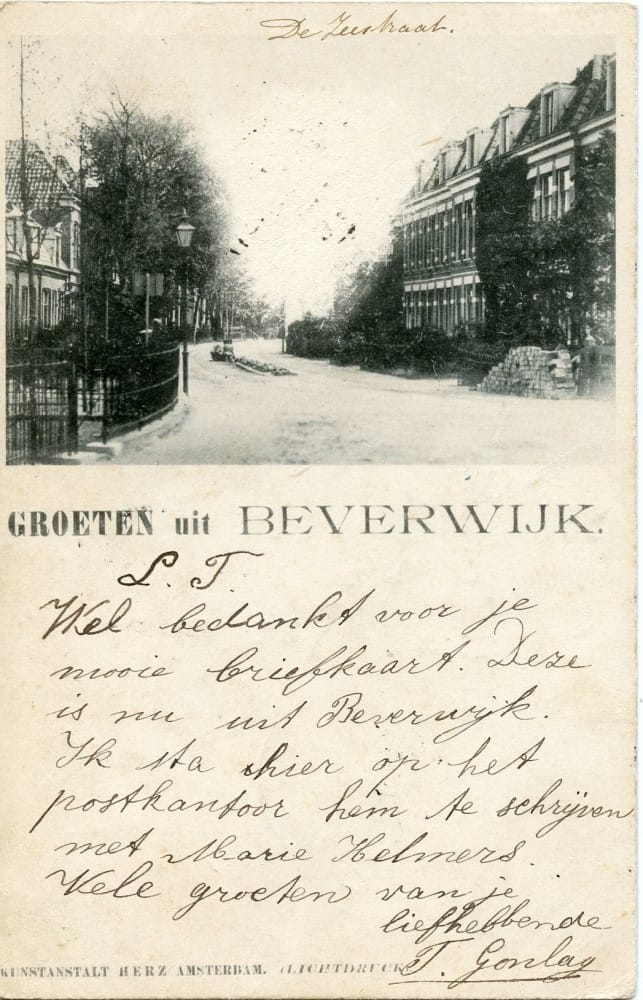 De Zeestraat.
GROETEN uit BEVERWIJK.
L. T
Wel bedankt voor je
mooie briefkaart. Deze
is nu uit Beverwijk.
Ik sta hier op het
postkantoor hem te schrijven
met Marie Helmers.
Vele groeten van je
liefhebbende
T. Gonlag
KUNSTANSTALT HERZ AMSTERDAM. (LICHTDRUCK